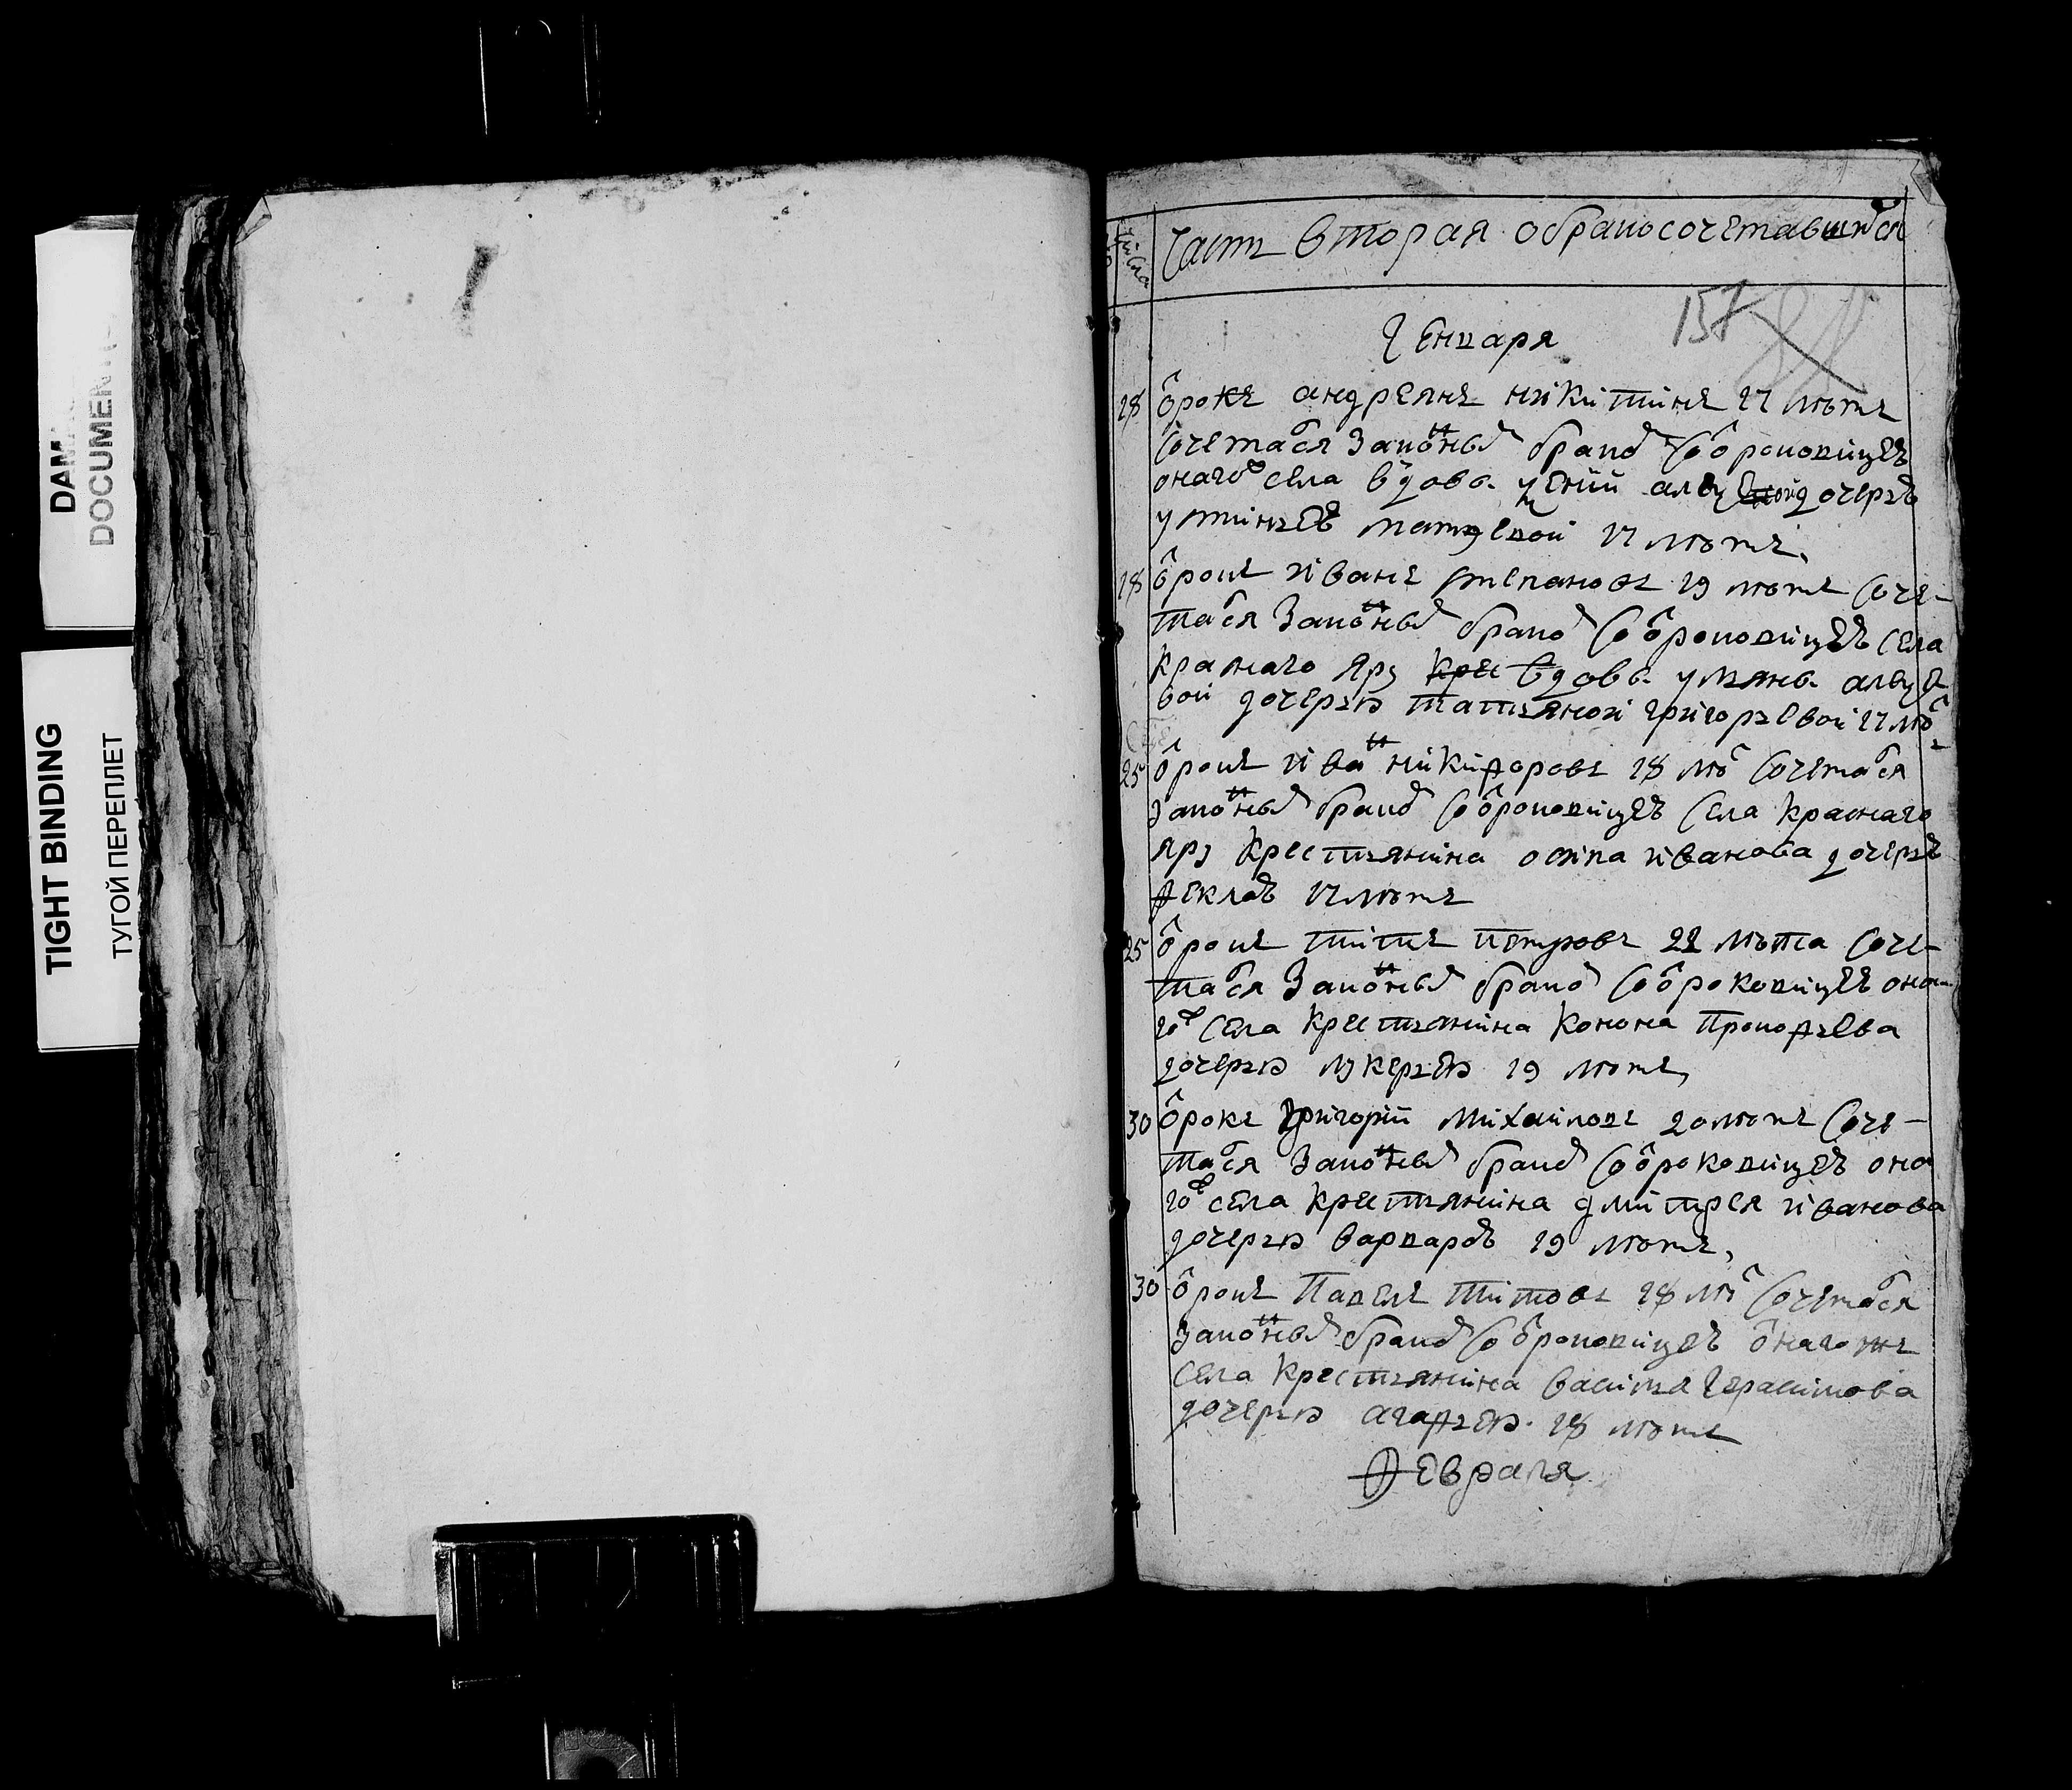 DAM
DOCUMENT
TIGHT BINDING
ТУГОЙ ПЕРЕПЛЕТ
число
Часть вторая обракосочетавшихся
157
Генваря
18 отрокъ андреянъ никитинъ 17 лѣтъ
сочетался законнымъ бракомъ сотроковицеѣ
оного села вдовы дочерѣ
устиньеѣ матвевой 17 лѣтъ,
18 отрокъ иванъ степановъ 19 лѣтъ соче-
тался законнымъ бракомъ сотроковицеѣ села
краснаго яру крес вдовы ульяны
вой дочерью татьяной григорьевой 17 лѣтъ
25 отрокъ иванъ никифоровъ 18 лѣтъ сочетался
законнымъ бракомъ сотроковицеѣ села краснаго
яру крестьянина осипа иванова дочерьѣ
феклоѣ 17 лѣтъ
25 отрокъ титъ петровъ 22 лѣта соче-
тался законнымъ бракомъ сотроковицеѣ она-
гожъ села крестьянина конона прокофьева
дочерью лукерьею 19 лѣтъ,
30 отрокъ григорий михаиловъ 20 лѣтъ соче-
тался законнымъ бракомъ сотроковицеѣ она
гожъ села крестьянина дмитрея иванова
дочерью варвароѣ 19 лѣтъ,
30 отрокъ павелъ титовъ 18 лѣтъ сочетался
законнымъ бракомъ сотроковицеѣ онагожъ
села крестьянина василья герасимова
дочерью агафьею 18 лѣтъ
Февраля